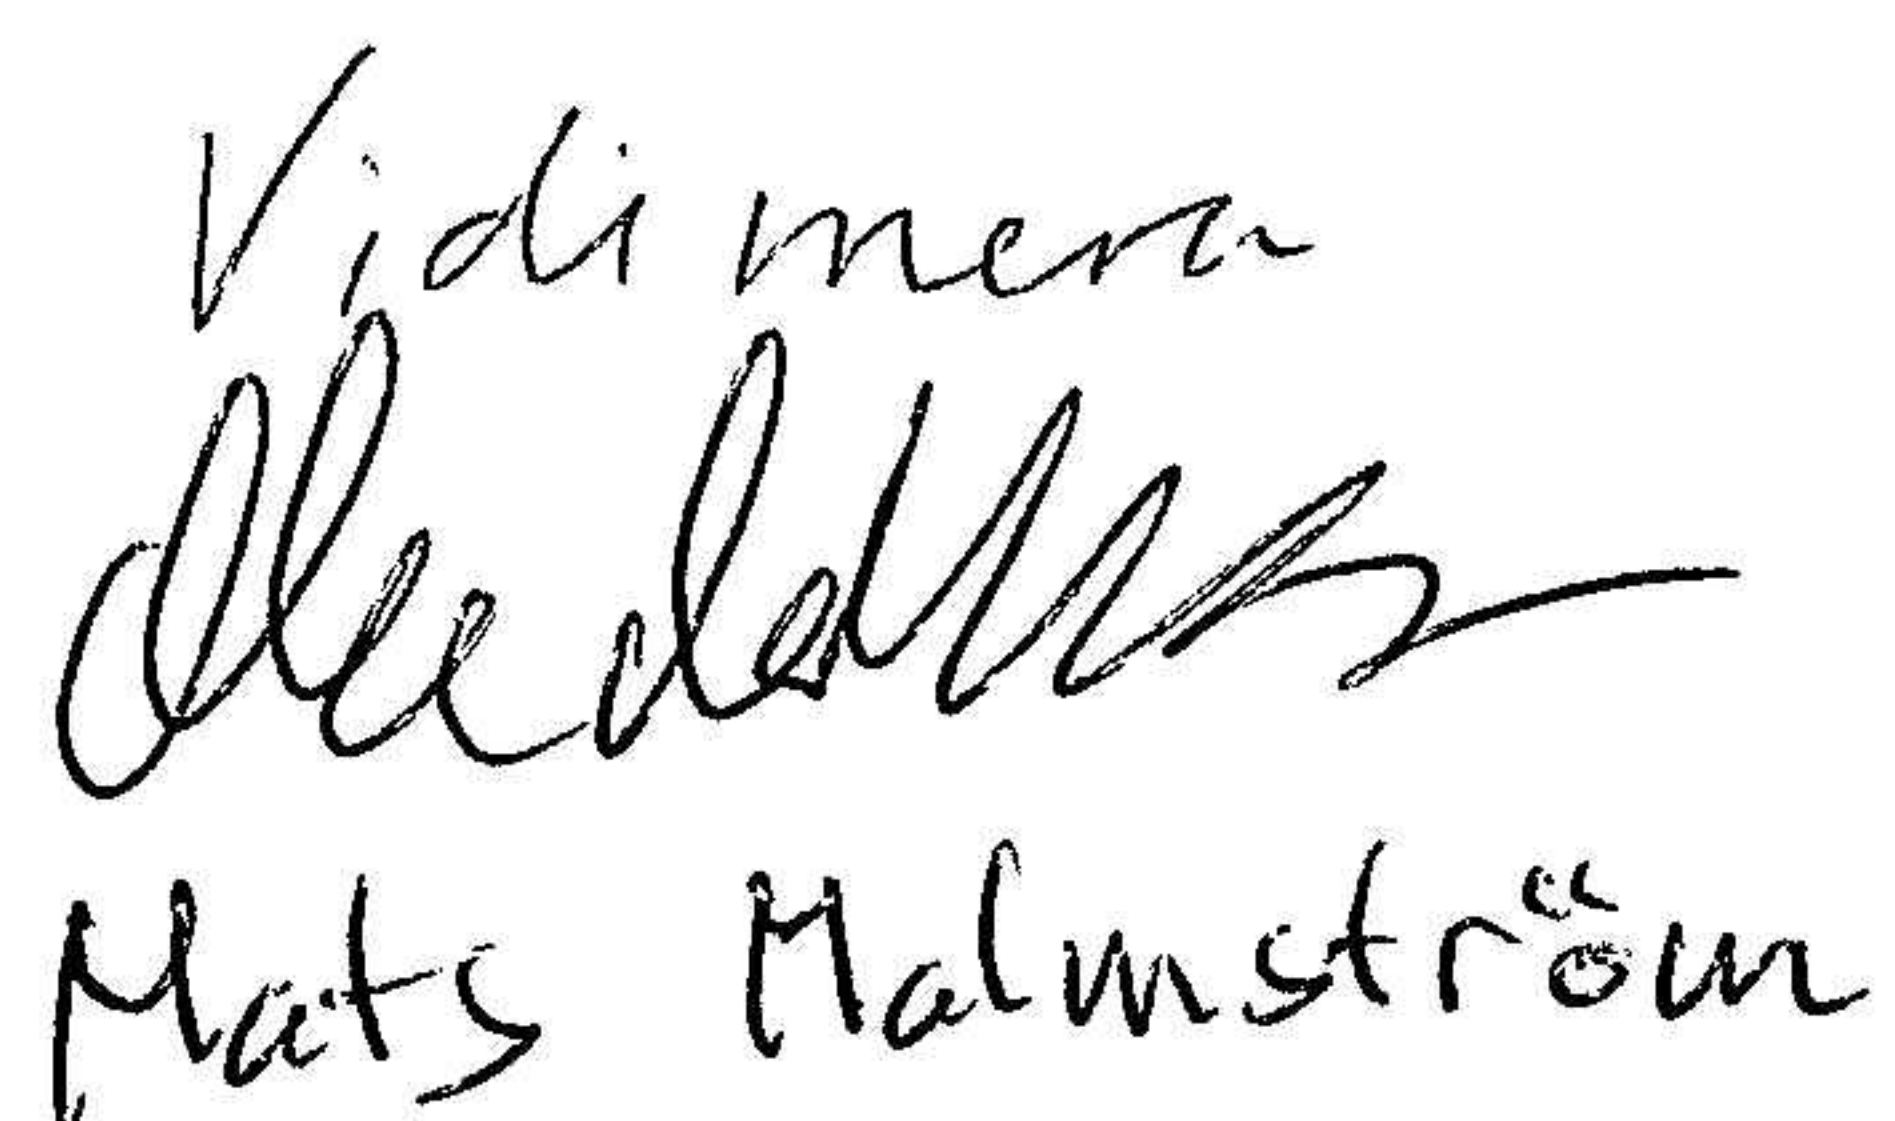 Vidimera
Mats Malmström